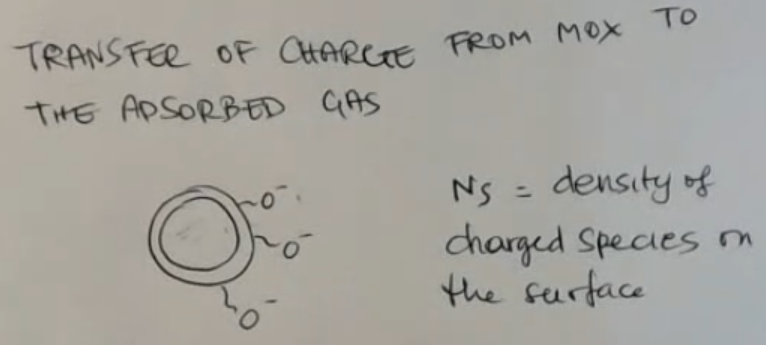 TRANSFER OF CHARGE FROM MOX TO
THE ADSORBED GAS
O⁻
O⁻
O⁻
Ns = density of
charged species on
the surface